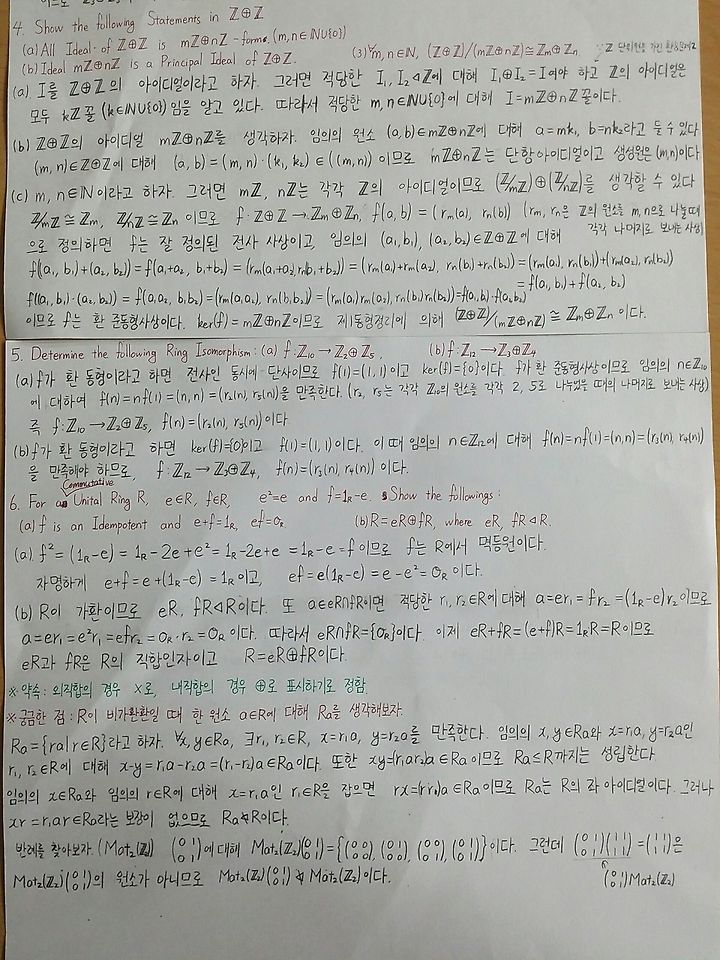 4. Show the following Statements in ℤ⊕ℤ
(a) All Ideal of ℤ⊕ℤ is mℤ⊕nℤ - form. (m,n∈ℕ∪{0})
(b) Ideal mℤ⊕nℤ is a Principal Ideal of ℤ⊕ℤ. (3) ∀m,n∈ℕ, (ℤ⊕ℤ)/(mℤ⊕nℤ)≅ℤm⊕ℤn ∵ℤ 단위원을 가진
(a) I를 ℤ⊕ℤ의 아이디얼이라고 하자. 그러면 적당한 I₁, I₂◁ℤ에 대해 I₁⊕I₂=I여야 하고 ℤ의 아이디얼은
모두 kℤ꼴 (k∈ℕ∪{0})임을 알고 있다. 따라서 적당한 m,n∈ℕ∪{0}에 대해 I=mℤ⊕nℤ꼴이다.
(b) ℤ⊕ℤ의 아이디얼 mℤ⊕nℤ를 생각하자. 임의의 원소 (a,b)∈mℤ⊕nℤ에 대해 a=mk₁, b=nk₂라고 둘 수 있다
(m,n)∈ℤ⊕ℤ에 대해 (a,b)=(m,n)·(k₁,k₂)∈((m,n))이므로 mℤ⊕nℤ는 단항아이디얼이고 생성원은 (m,n)이다
(c) m, n∈ℕ이라고 하자. 그러면 mℤ, nℤ는 각각 ℤ의 아이디얼이므로 (ℤ/mℤ)⊕(ℤ/nℤ)를 생각할 수 있다
ℤ/mℤ≅ℤm, ℤ/nℤ≅ℤn 이므로 f:ℤ⊕ℤ→ℤm⊕ℤn, f(a,b)=(rm(a), rn(b)) (rm, rn은 ℤ의 원소를 m,n으로 나눌때
으로 정의하면 f는 잘 정의된 전사 사상이고, 임의의 (a₁,b₁), (a₂,b₂)∈ℤ⊕ℤ에 대해 각각 나머지로 보내는 사상)
f((a₁,b₁)+(a₂,b₂))=f(a₁+a₂, b₁+b₂)=(rm(a₁+a₂), rn(b₁+b₂))=(rm(a₁)+rm(a₂), rn(b₁)+rn(b₂))=(rm(a₁), rn(b₁))+(rm(a₂), rn(b₂))
=f(a₁,b₁)+f(a₂,b₂)
f((a₁,b₁)·(a₂,b₂))=f(a₁a₂, b₁b₂)=(rm(a₁a₂), rn(b₁b₂))=(rm(a₁)rm(a₂), rn(b₁)rn(b₂))=f(a₁,b₁)·f(a₂,b₂)
이므로 f는 환 준동형사상이다. ker(f)=mℤ⊕nℤ이므로 제1동형정리에 의해 (ℤ⊕ℤ)/(mℤ⊕nℤ)≅ℤm⊕ℤn 이다.
5. Determine the following Ring Isomorphism: (a) f:ℤ₁₀→ℤ₂⊕ℤ₅, (b) f:ℤ₁₂→ℤ₃⊕ℤ₄
(a) f가 환 동형이라고 하면 전사인 동시에 단사이므로 f(1)=(1,1)이고 ker(f)={0}이다. f가 환 준동형사상이므로 임의의 n∈ℤ₁₀
에 대하여 f(n)=nf(1)=(n,n)=(r₂(n), r₅(n))을 만족한다. (r₂, r₅는 각각 ℤ₁₀의 원소를 각각 2, 5로 나누었을 때의 나머지로 보내는 사상)
즉 f:ℤ₁₀→ℤ₂⊕ℤ₅, f(n)=(r₂(n), r₅(n))이다
(b) f가 환 동형이라고 하면 ker(f)={0}이고 f(1)=(1,1)이다. 이 때 임의의 n∈ℤ₁₂에 대해 f(n)=nf(1)=(n,n)=(r₃(n), r₄(n))
을 만족해야 하므로, f:ℤ₁₂→ℤ₃⊕ℤ₄, f(n)=(r₃(n), r₄(n))이다.
Commutative
6. For a Unital Ring R, e∈R, f∈R, e²=e and f=1R-e. Show the followings:
(a) f is an Idempotent and e+f=1R, ef=0R (b) R=eR⊕fR, where eR, fR◁R.
(a) f²=(1R-e)=1R-2e+e²=1R-2e+e=1R-e=f 이므로 f는 R에서 멱등원이다.
자명하게 e+f=e+(1R-e)=1R이고, ef=e(1R-e)=e-e²=0R이다.
(b) R이 가환이므로 eR, fR◁R이다. 또 a∈eR∩fR이면 적당한 r₁,r₂∈R에 대해 a=er₁=fr₂=(1R-e)r₂이므로
a=er₁=e²r₁=efr₂=0R·r₂=0R이다. 따라서 eR∩fR={0R}이다. 이제 eR+fR=(e+f)R=1RR=R이므로
eR과 fR은 R의 직합인자이고 R=eR⊕fR이다.
※약속: 외직합의 경우 ×로, 내직합의 경우 ⊕로 표시하기로 정함.
※궁금한 점: R이 비가환환일 때 한 원소 a∈R에 대해 Ra를 생각해보자.
Ra={ra|r∈R}라고 하자. ∀x,y∈Ra, ∃r₁,r₂∈R, x=r₁a, y=r₂a를 만족한다. 임의의 x,y∈Ra와 x=r₁a, y=r₂a인
r₁,r₂∈R에 대해 x-y=r₁a-r₂a=(r₁-r₂)a∈Ra이다. 또한 xy=(r₁ar₂)a∈Ra이므로 Ra≤R까지는 성립한다.
임의의 x∈Ra와 임의의 r∈R에 대해 x=r₁a인 r₁∈R을 잡으면 rx=(rr₁)a∈Ra이므로 Ra는 R의 좌 아이디얼이다. 그러나
xr=r₁ar∈Ra라는 보장이 없으므로 Ra⋪R이다.
반례를 찾아보자. (Mat₂(ℤ₂)) (0 1; 0 1)에 대해 Mat₂(ℤ₂)(0 1; 0 1)={(0 0; 0 0), (0 1; 0 0), (0 0; 0 1), (0 1; 0 1)}이다. 그런데 (0 1; 0 1)(1 1; 1 1)=(1 1; 1 1)은
Mat₂(ℤ₂)(0 1; 0 1)의 원소가 아니므로 Mat₂(ℤ₂)(0 1; 0 1)⋪Mat₂(ℤ₂)이다. (0 1; 0 1)Mat₂(ℤ₂)